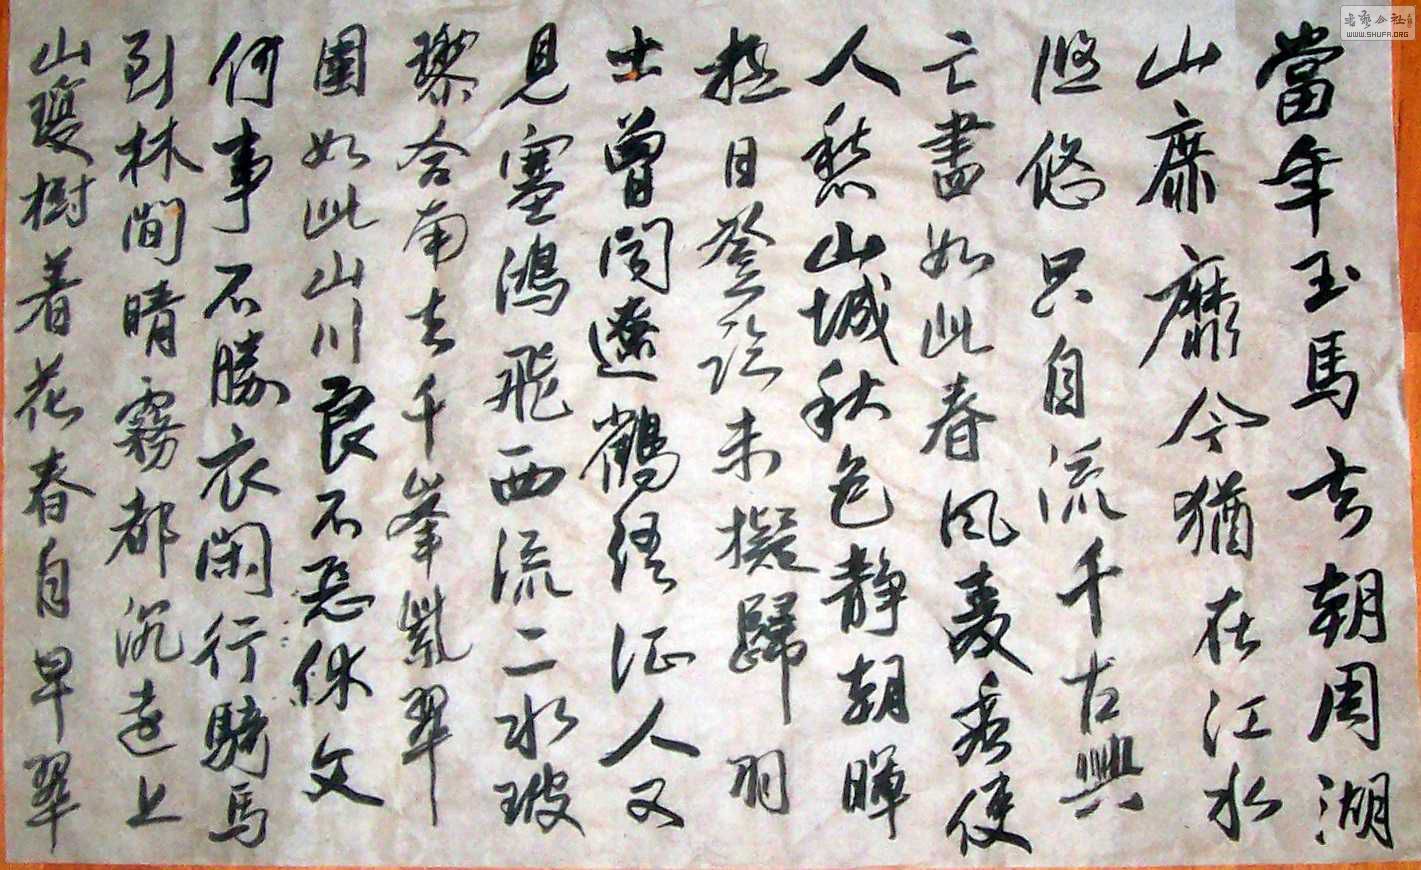 當年玉馬去朝周湖
山靡靡今猶在江水
悠悠只自流千古興
亡盡如此春風麥秀使
人愁山城秋色靜朝暉
極目登臨未擬歸羽
士曾聞遼鶴語征人又
見塞鴻飛西流二水玻
瓈合南去千峯紫翠
圍如此山川良不惡休文
何事不勝衣閑行騎馬
到林間晴霧都沉遠上
山瓊樹着花春自早翠
WWW.SHUFA.ORG